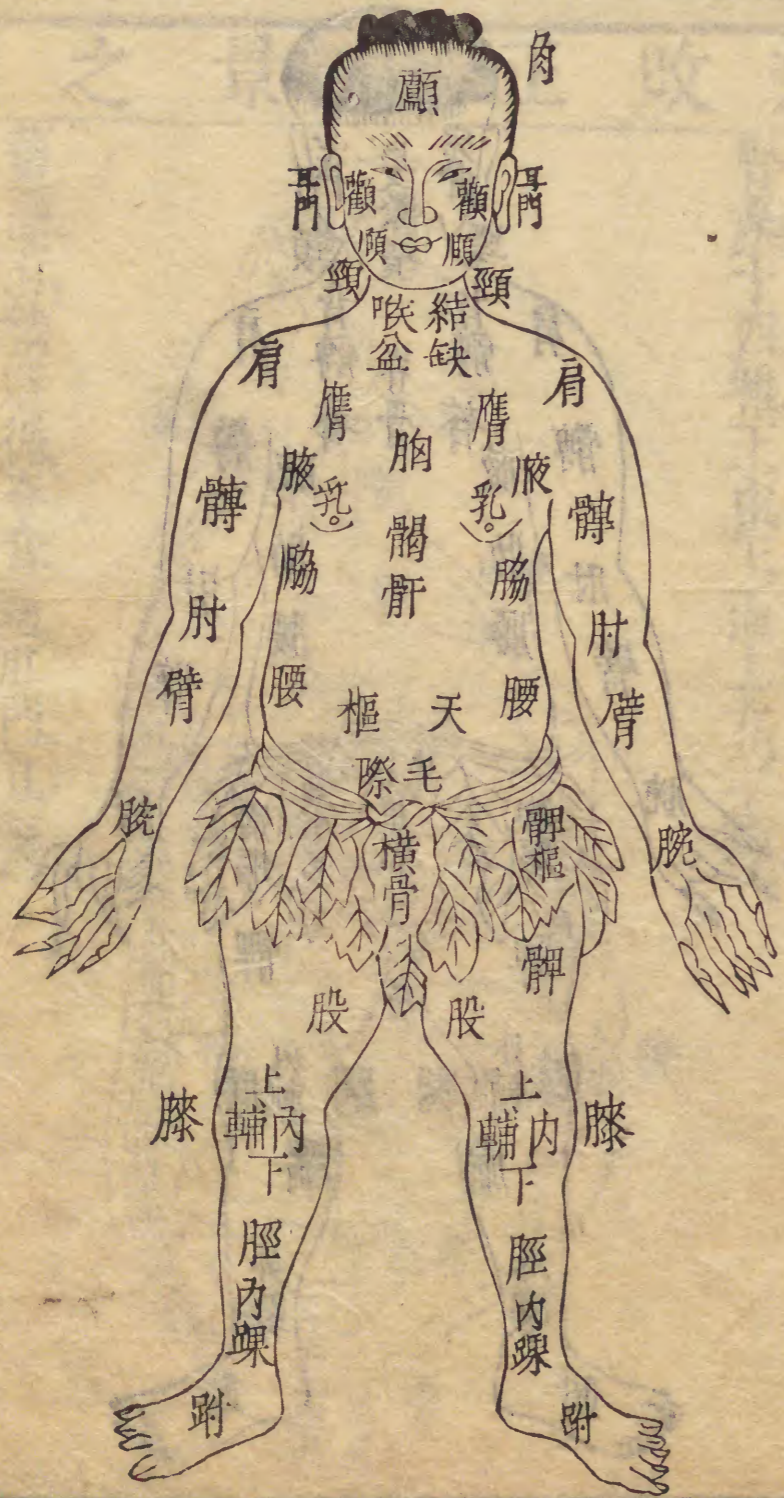 角
顱
耳門
耳門
顴
顴
頸
頸
結喉
缺盆
肩
肩
膺
膺
胸
腋
腋
乳
乳
髆
髆
𩩲骬
脇
脇
肘
肘
臂
臂
腰
腰
天樞
毛際
腕
腕
髀樞
橫骨
髀
股
股
膝
膝
上
內輔
下
上
內輔
下
脛
脛
內踝
內踝
跗
跗